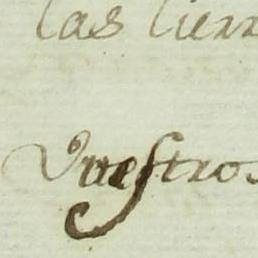 las tierr
Vuestros